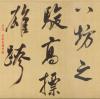 八坊之
駿高標
雄跨